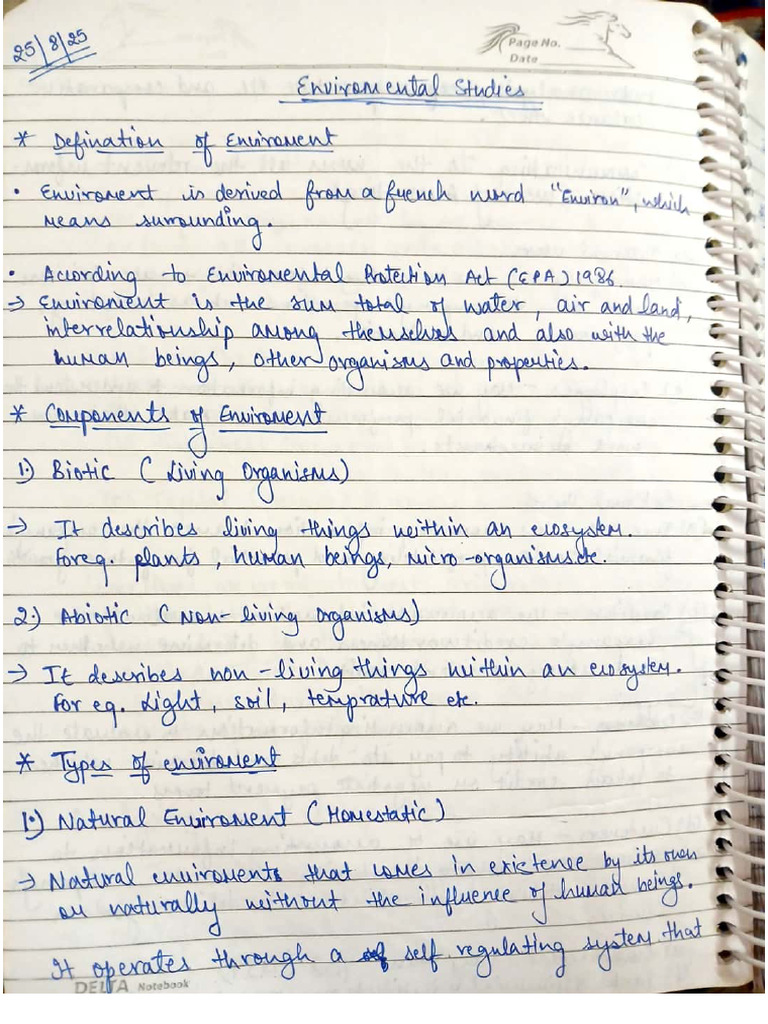 25/8/25
Page No.
Date
Enviromental Studies
* Defination of Enviroment
• Enviroment is derived from a french word "Environ", which
means surrounding.
• According to Enviromental Protection Act (EPA) 1986.
→ Enviroment is the sum total of water, air and land,
interrelationship among themselves and also with the
human beings, other organisms and properties.
* Components of Enviroment
1.) Biotic (Living Organisms)
→ It describes living things within an ecosystem.
For eg. plants, human beings, micro-organisms etc.
2.) Abiotic (Non-living organisms)
→ It describes non-living things within an ecosystem.
For eg. Light, soil, temprature etc.
* Types of enviroment
1.) Natural Enviroment (Homestatic)
→ Natural enviroments that comes in existence by its own
or naturally without the influence of human beings.
It operates through a self regulating system that
DELTA Notebook